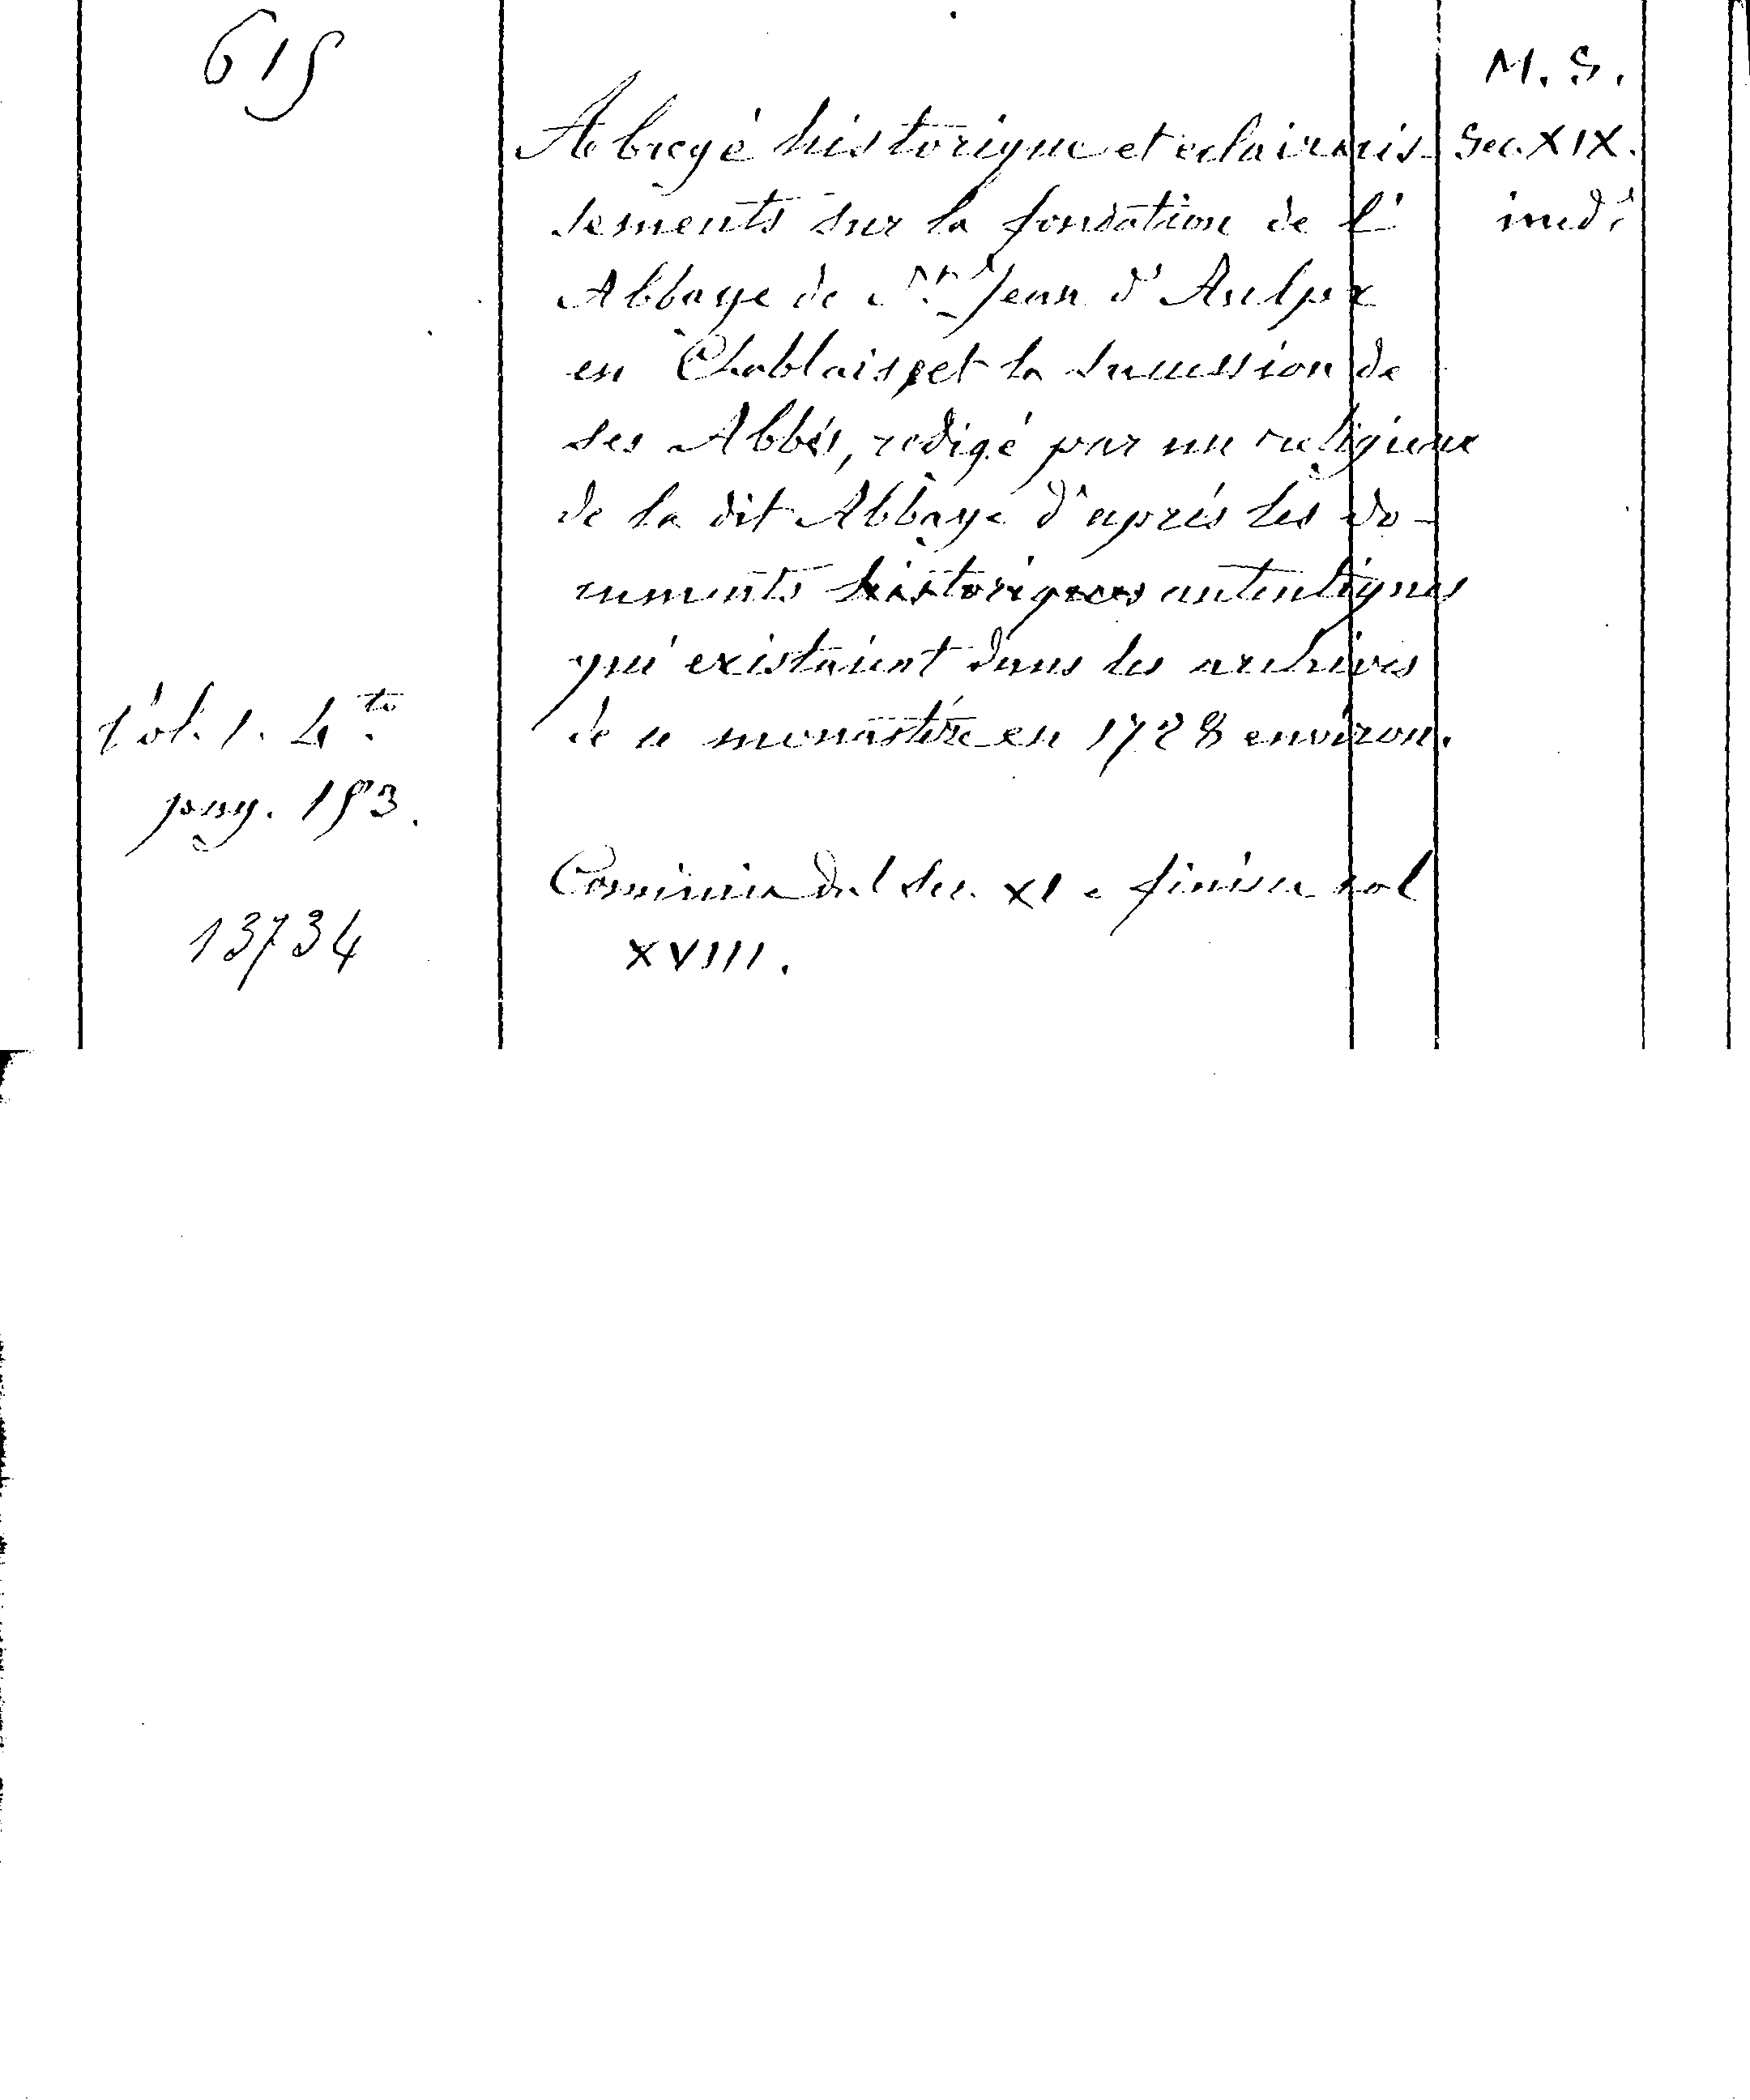 615
M. S.
Abregé historique et eclaircis-
Sec. XIX.
sements sur la fondation de l'
ined.
Abbaye de St. Jean d'Aulpx
en Chablais, et la succession de
ses Abbés, redigé par un religieux
de la dit Abbaye d'aprés les do-
cuments historiques autentiques
qui existaient dans les archives
Vol. 1. 4to.
de ce monastére en 1728 environ.
pag. 153.
Comincia dal Sec. XI e finisce col
13734
XVIII.